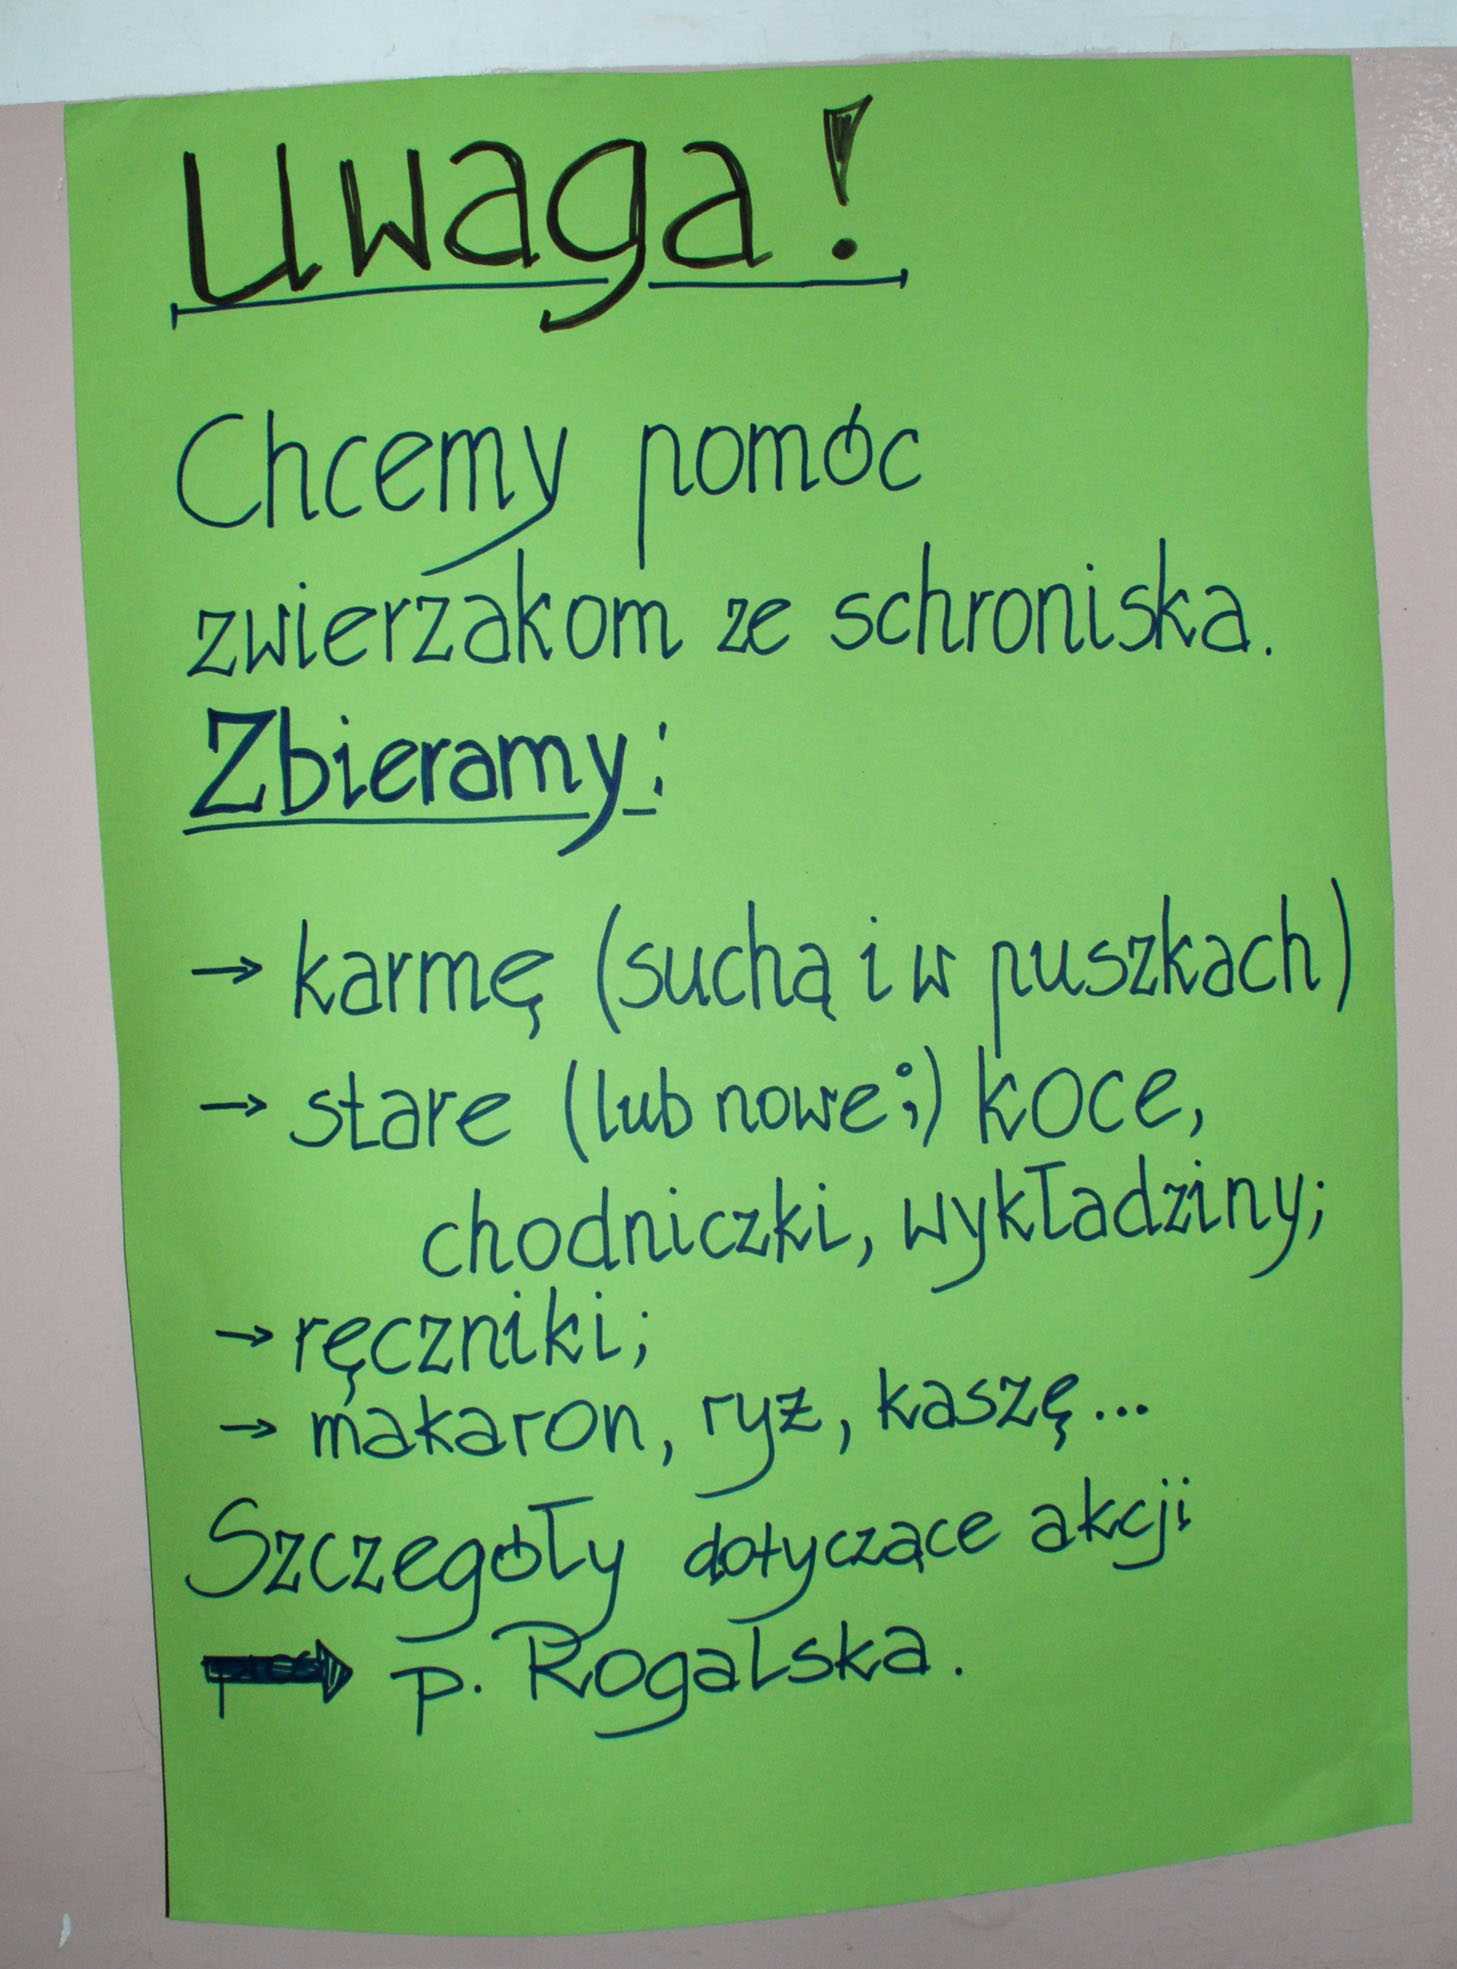 Uwaga!
Chcemy pomóc
zwierzakom ze schroniska.
Zbieramy:
→ karmę (suchą i w puszkach)
→ stare (lub nowe ;) koce,
chodniczki, wykładziny;
→ ręczniki;
→ makaron, ryż, kaszę...
Szczegóły dotyczące akcji
→ p. Rogalska.